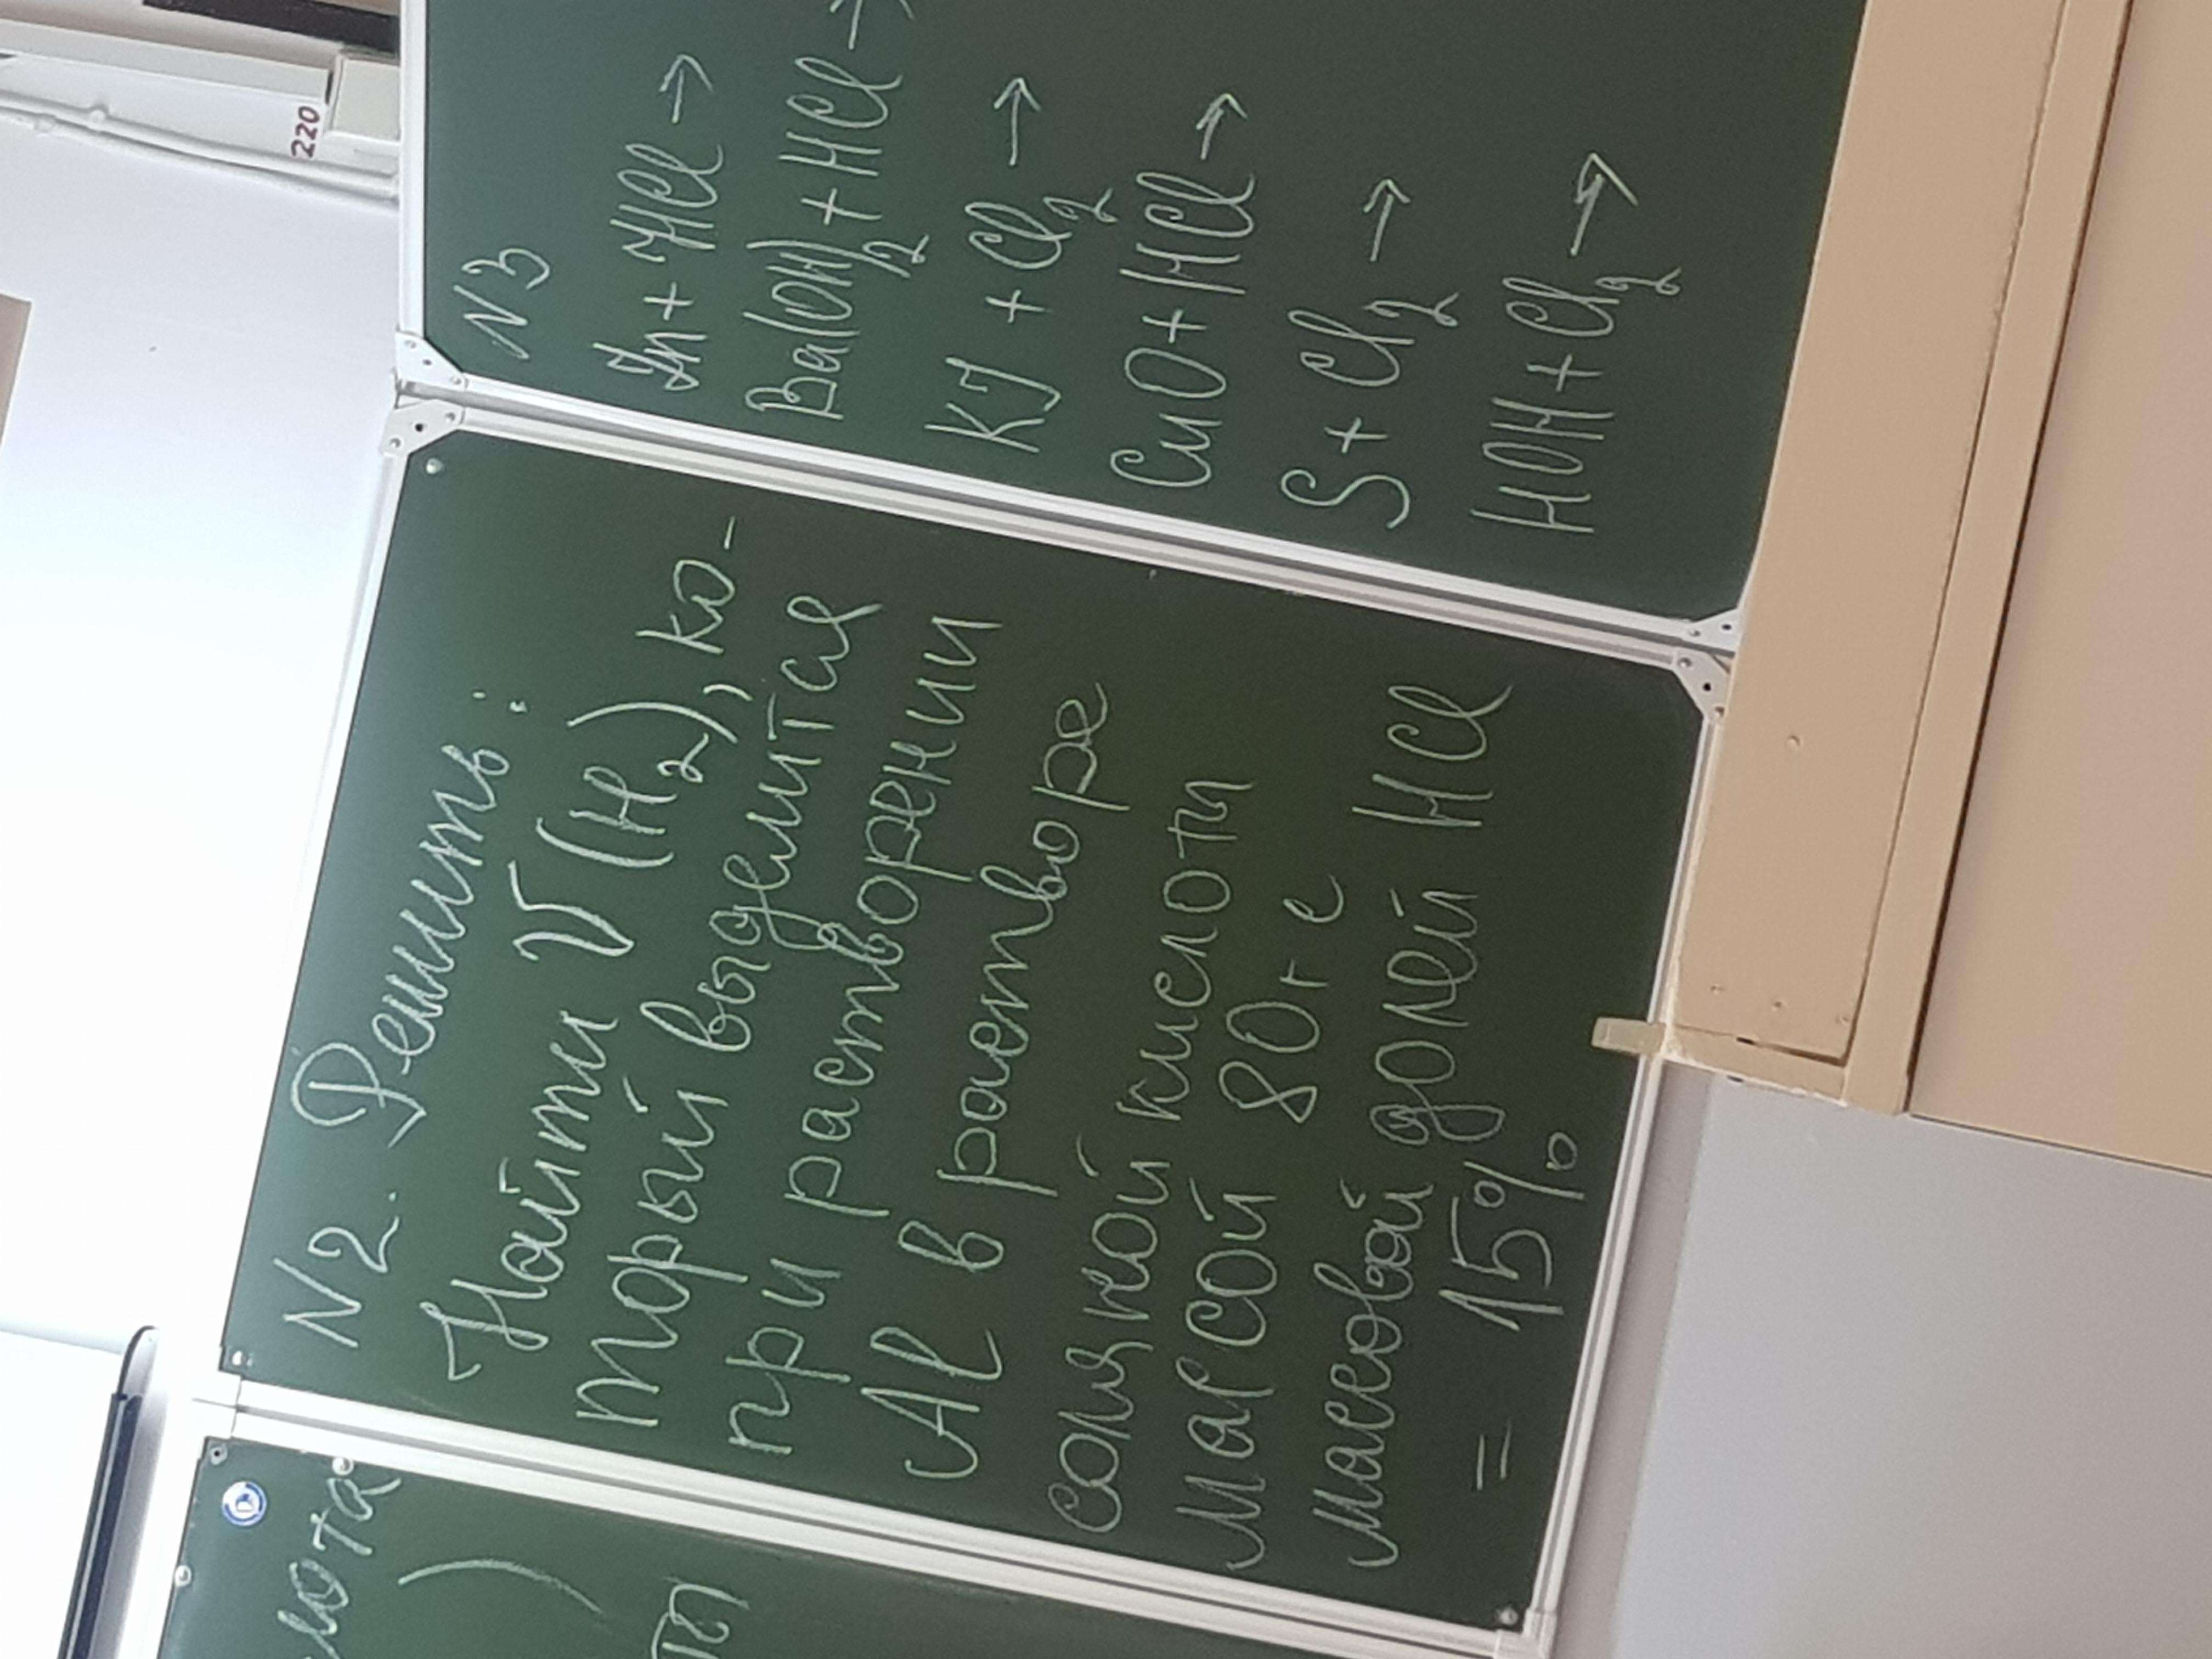 лота
)
ты
N2. Решить:
Найти V(H2), ко-
торый выделится
при растворении
Al в растворе
соляной кислоты
массой 80г с
массовой долей HCl
= 15%
N3
Zn + HCl →
Ba(OH)2 + HCl →
KJ + Cl2 →
CuO + HCl →
S + Cl2 →
HOH + Cl2 →
220